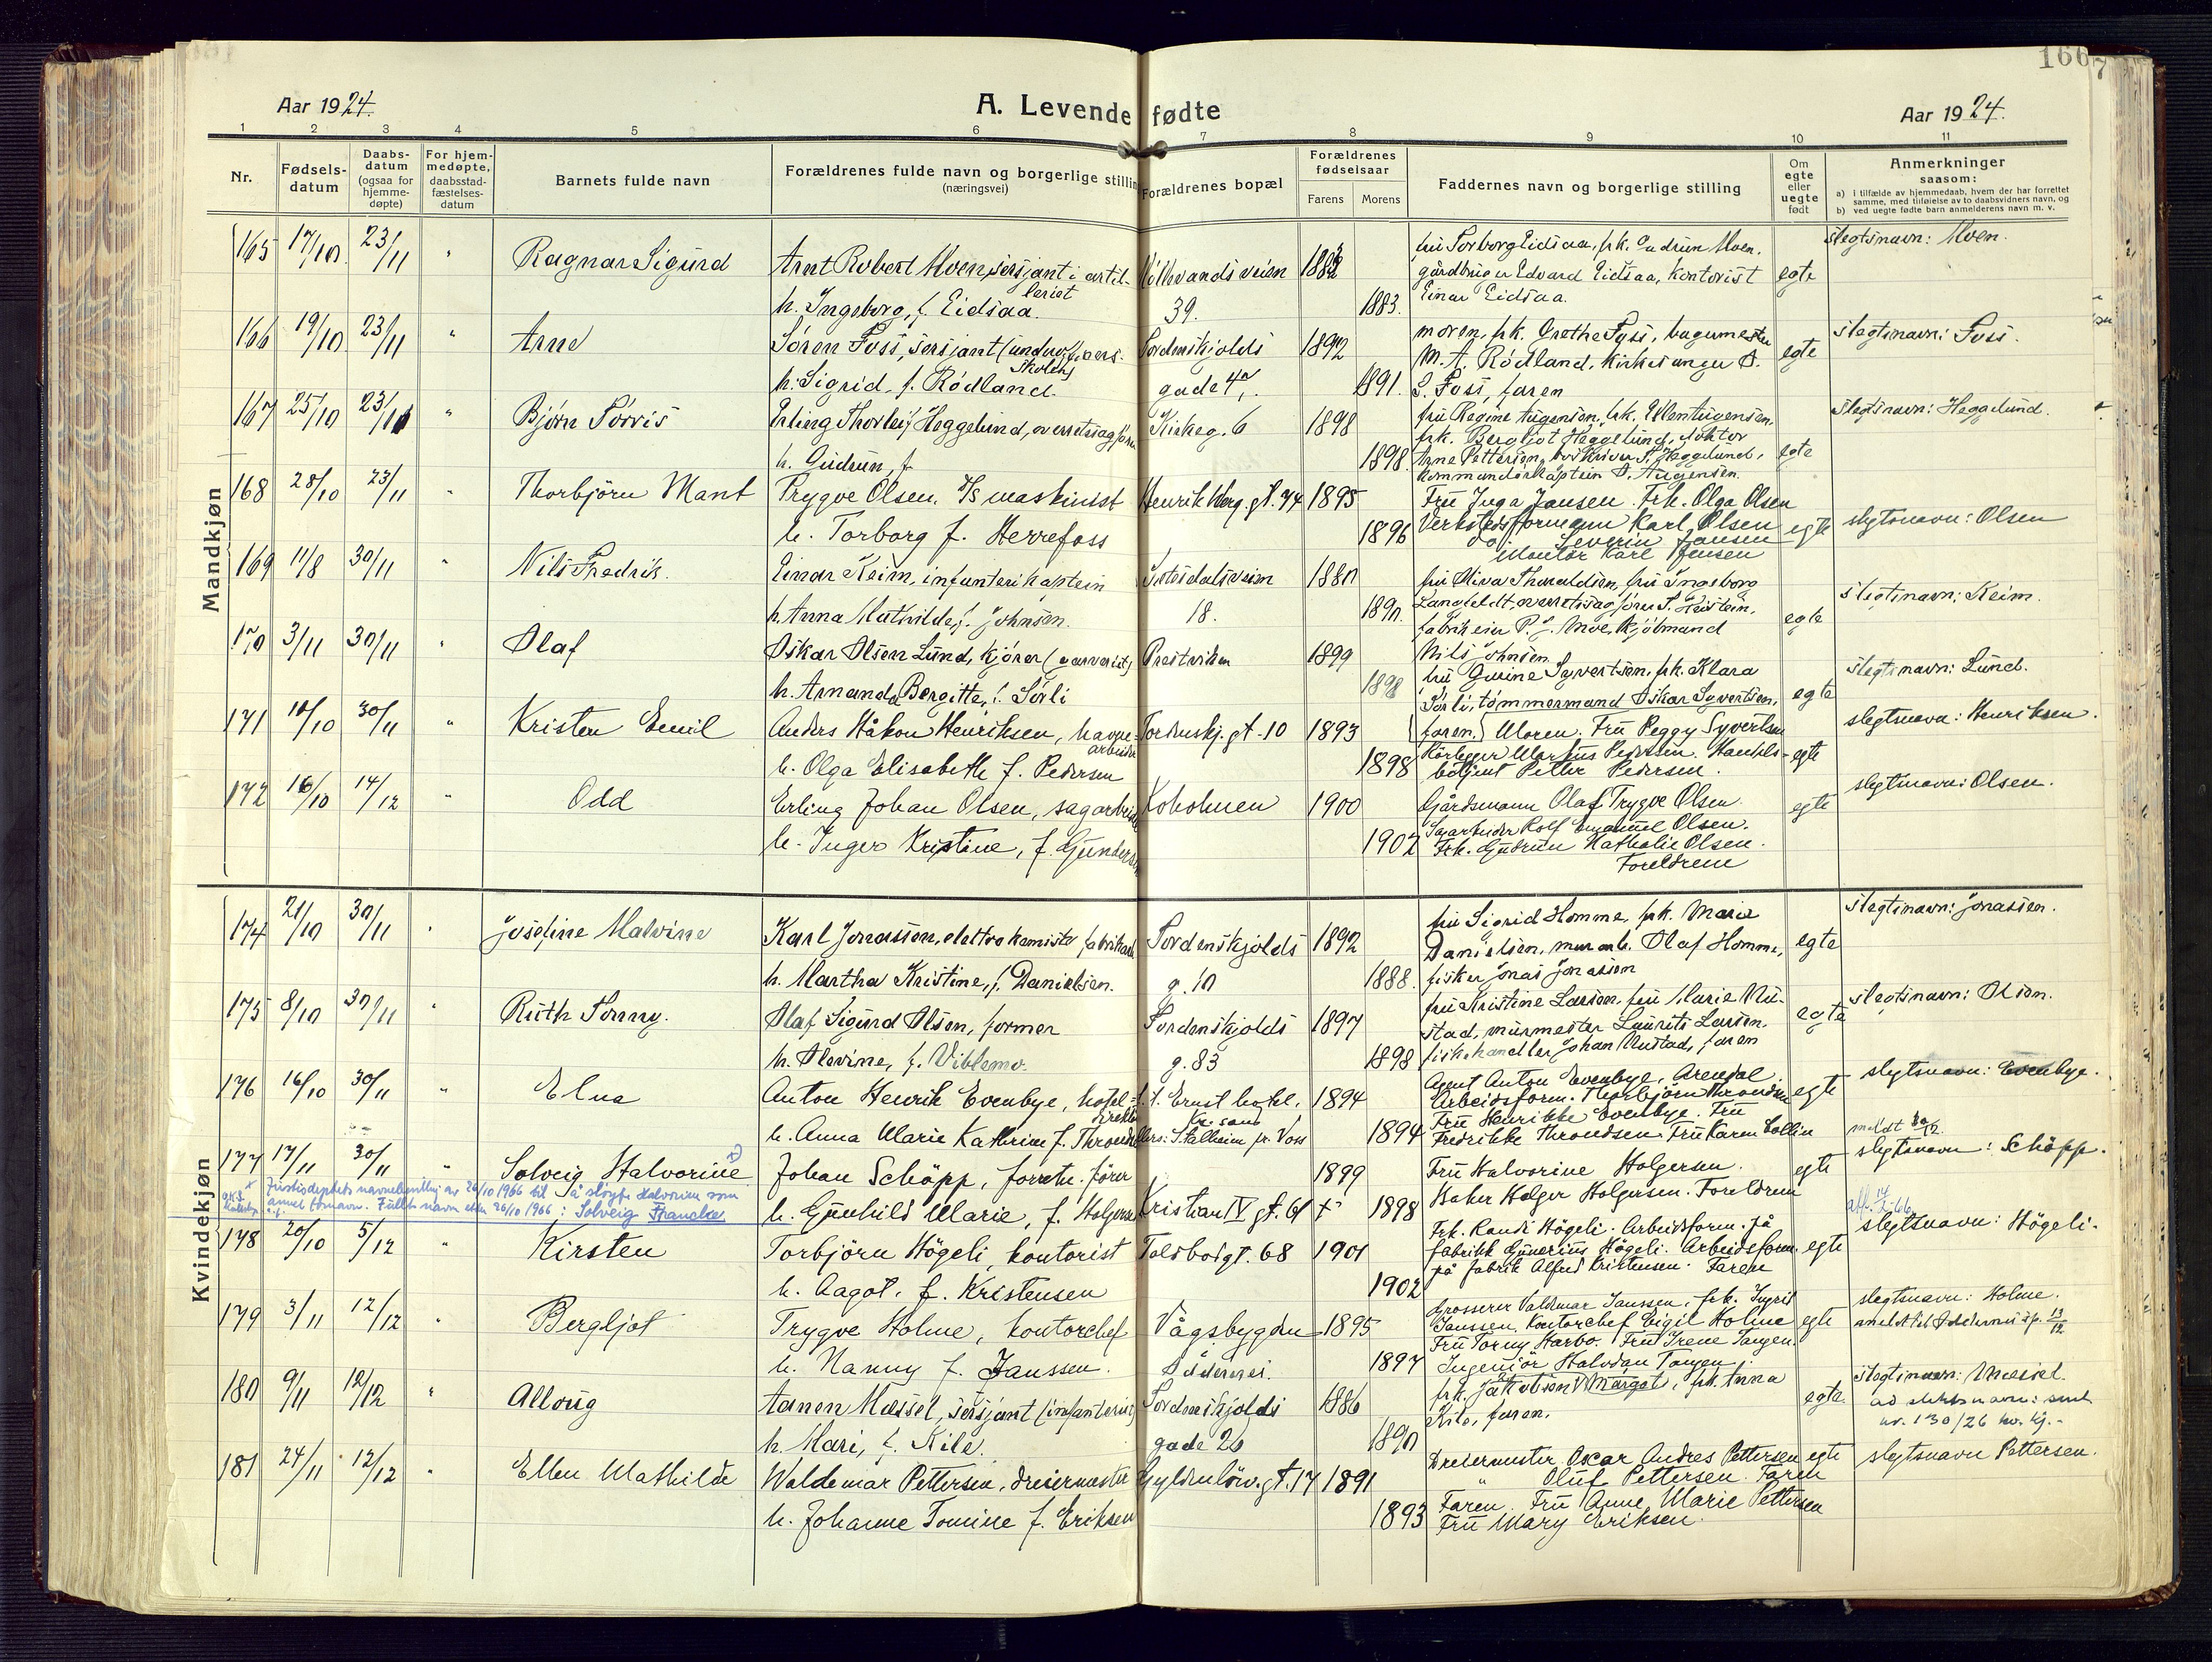 166
7
Aar 1924.
A. Levende fødte
Aar 1924.
1 2 3 4 5 6 7 8 9 10 11
Nr.
Fødselsdatum
Daabsdatum (ogsaa for hjemmedøpte)
For hjemmedøpte, daabsstadfæstelsesdatum
Barnets fulde navn
Forældrenes fulde navn og borgerlige stilling (næringsvei)
Forældrenes bopæl
Forældrenes fødselsaar
Farens Morens
Faddernes navn og borgerlige stilling
Om egte eller uegte født
Anmerkninger saasom:
a) i tilfælde av hjemmedaab, hvem der har forrettet samme, med tilføielse av to daabsvidners navn, og
b) ved uegte fødte barn anmelderens navn m. v.
Mandkjøn
165 17/10 23/11 " Ragnar Sigurd Arnt Robert Moen, sersjant i artilleriet 1882 fru Torborg Eidsaa, frk. Gudrun Moen, slegtsnavn: Moen.
gårdbruger Edvard Eidsaa, kontorist egte
h. Ingeborg, f. Eidsaa. 39. 1883. Einar Eidsaa.
166 19/10 23/11 " Arne Søren Foss, sersjant (underofficersskolen) Tordenskjolds 1892 moren, frk. Grethe Foss, slegtsnavn: Foss.
M. A. Rødland, kirkesanger egte
h. Sigrid, f. Rødland. gade 4, 1891. S. Foss, faren
167 25/10 23/11 " Bjørn Erling Thorleif Heggelund, overretssagfører Kirkeg. 6 1898 fru Regine Augensen, frk. Ellen Augensen, slegtsnavn: Heggelund.
frk. Bergljot Heggelund, doktor
h. Gudrun, f. 1898 Arne Pettersen, Heggelund, egte
kommandørkaptein Augensen.
168 28/10 23/11 " Thorbjörn Mant Trygve Olsen, D/S maskinist Henrik Werg. gt. 74 1895 Fru Inga Jansen. Frk. Olga Olsen
h. Torborg f. Herrefoss 1896 Verkstedsformann Karl Olsen egte slegtsnavn: Olsen
do. Severin Jansen
Montör Karl Jensen
169 11/8 30/11 " Nils Fredrik. Einar Keim, infanterikaptein Setesdalsveien 1880 fru Thoraldsen, fru Ingeborg slegtsnavn: Keim.
h. Anna Mathilde, f. Johnsen. 18. 1890. Langfeldt, overretssagfører
fabrikeier P. J. Moe, kjøbmand egte
Nils Johnsen
170 3/11 30/11 " Olaf Oskar Olsen Lund, kjører (garveriet) Prestviken 1899 fru Gurine Syvertsen, frk. Klara slegtsnavn: Lund.
h. Amanda Bergitte, f. Sørli 1898 Sørli, tømmermand Oskar Syvertsen, egte
faren.
171 10/10 30/11 " Kristen Emil Anders Håkon Henriksen, havnearbeider Tordenskj. gt. 10 1893 Moren. Fru Peggy Syvertsen slegtsnavn: Henriksen.
h. Olga Elisabeth f. Pedersen 1898 Rörlegger Markus Pedersen. Handelsbetjent Petter Pedersen. egte
172 16/10 14/12 " Odd Erling Johan Olsen, sagarbeider Koholmen 1900 Gårdsmann Olaf Trygve Olsen egte slegtsnavn: Olsen.
Sagarbeider Rolf Emanuel Olsen.
h. Inger Kristine, f. Gundersen 1902 Frk. Gudrun Nathalie Olsen.
Foreldrene
Kvindekjøn
174 21/10 30/11 " Josefine Malvine Karl Jonassen, elektrokemiske fabrikker Tordenskjolds 1892 fru Sigrid Homme, frk. Marie slegtsnavn: Jonassen.
Danielsen, murarb. Olaf Homme, egte
h. Martha Kristine, f. Danielsen. g. 10 1888. fisker Jonas Jonassen
175 8/10 30/11 " Ruth Tommy. Olaf Sigurd Olsen, former Tordenskjolds 1897 fru Kristine Larsen, fru Marie Nustad, murmester Laurits Larsen, egte slegtsnavn: Olsen.
h. Olevine, f. Viblemo. g. 83 1898 fiskehandler Johan Nustad, faren
176 16/10 30/11 " Elna Anton Henrik Evenbye, hoteldirektör f. t. Ernst hotel, Kr.sand 1894 Agent Anton Evenbye, Arendal egte slegtsnavn: Evenbye.
Arbeidsform. Thorbjörn Throndsen
h. Anna Marie Kathrine f. Throndsen Stalheim pr. Voss 1894 Fru Henrikke Evenbye. Fru
Fredrikke Throndsen. Fru Karen Collin
177 17/11 30/11 " Solveig Halvorine x) Johan Schöpp, forretn. förer 1899 Fru Halvorine Holgersen. egte slegtsnavn: Schöpp.
h. Gunhild Marie, f. Holgersen Kristian IV gt. 61 1898 Baker Holger Holgersen. Foreldrene
Justisdeptets navnebevilling av 26/10 1966 til å sløyfe Halvorine som
annet fornavn. Fullt navn etter 26/10 1966: Solveig Francke
178 20/10 5/12 " Kirsten Torbjörn Högeli, kontorist Toldbodgt. 68 1901 Frk. Randi Högeli. Arbeidsform. på slegtsnavn: Högeli.
fabrikk Gunerius Högeli. Arbeidsform. egte
h. Aagot, f. Kristensen 1902 på fabrik Alfred Kristensen. Faren
179 3/11 12/12 " Bergljot Trygve Holme, kontorchef Vågsbygden 1895 Grosserer Valdemar Janssen, frk. Ingrid slegtsnavn: Holme.
Janssen, kontorchef Eigil Holme egte 13/12
h. Nanny f. Janssen. 1897 Fru Torny Harbo. Fru Irene Tangen.
Ingeniör Halvdan Tangen.
180 9/11 12/12 " Alloug Aanen Messel, sersjant (infanteriet) Tordenskjolds 1886 frk. Jakobsen Margot, frk. Anna slegtsnavn: Messel.
h. Mari, f. Kile. gade 20 1890 Kile, faren. egte
nr. 130/26 kv. kj.
181 24/11 12/12 " Ellen Mathilde Waldemar Pettersen, dreiermester Gyldenlöv. gt. 17 1891 Dreiermester Oscar Andres Pettersen egte slegtsnavn Pettersen.
" Oluf Pettersen. Faren
Faren. Fru Anne Marie Pettersen
h. Johanne Tomine f. Eriksen 1893 Fru Mary Eriksen.